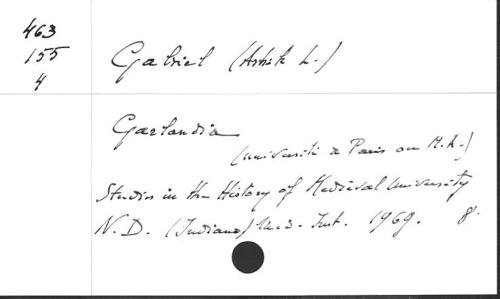 463
155
4
Gabriel (Astrik L.)
Garlandia
(université à Paris au M.A.)
Studies in the History of Medieval University
N.D. (Indiana) Med. Inst. 1969. 8.